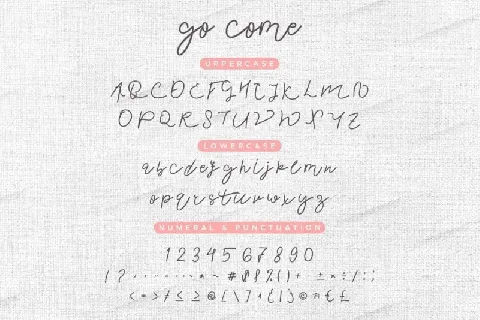 go come
UPPERCASE
ABCDEFGHIJKLMN
OPQRSTUVWXYZ
LOWERCASE
abcdefghijklmn
opqrstuvwxyz
NUMERAL & PUNCTUATION
1234567890